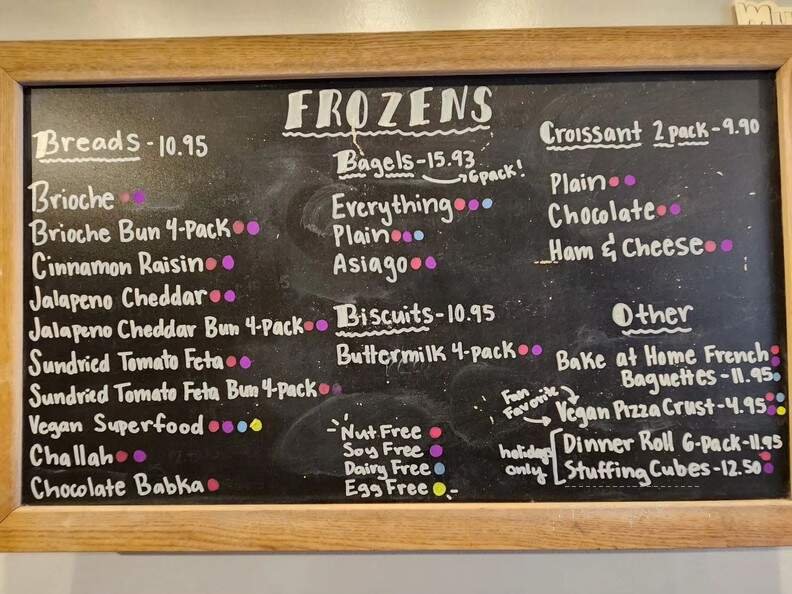 FROZENS
Breads - 10.95
Brioche
Brioche Bun 4-Pack
Cinnamon Raisin
Jalapeno Cheddar
Jalapeno Cheddar Bun 4-Pack
Sundried Tomato Feta
Sundried Tomato Feta Bun 4-Pack
Vegan Superfood
Challah
Chocolate Babka
Bagels - 15.93
6pack!
Everything
Plain
Asiago
Biscuits - 10.95
Buttermilk 4-pack
Nut Free
Soy Free
Dairy Free
Egg Free
Croissant 2 pack - 9.90
Plain
Chocolate
Ham & Cheese
Other
Bake at Home French
Baguettes - 11.95
Fan
Favorite
Vegan Pizza Crust - 4.95
holidays
only
Dinner Roll 6-Pack - 11.95
Stuffing Cubes - 12.50